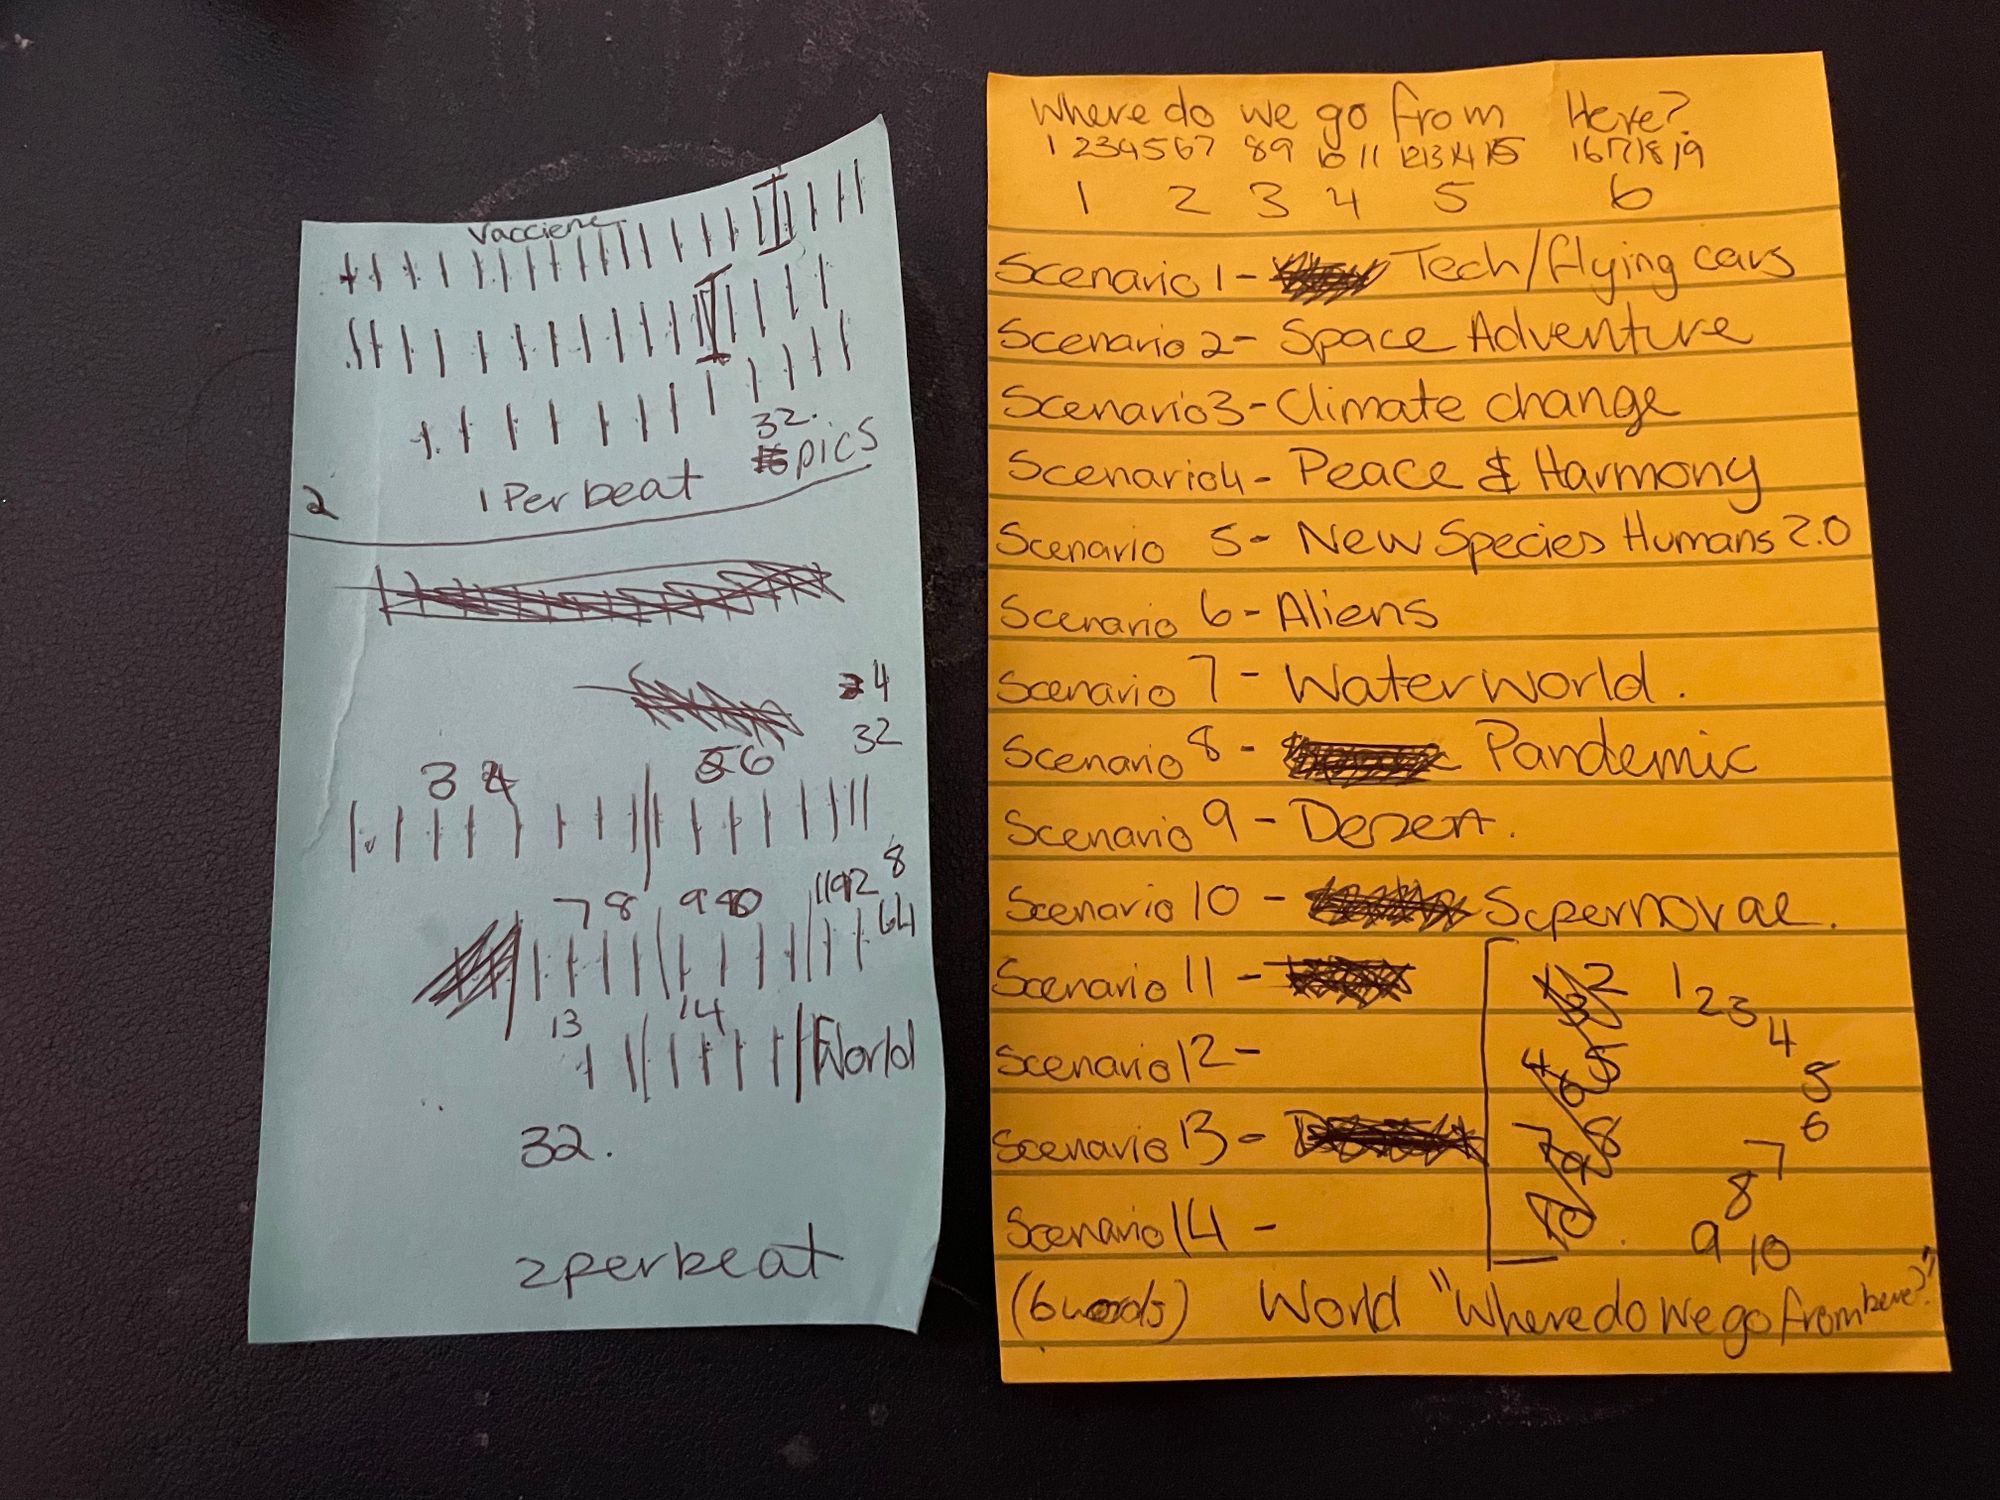 Vacciene
32.
pics
1 Per beat
2
4
32
3 4
56
8
7 8 9 10 11 12
64
13 14
World
32.
2 per beat
Where do we go from Here?
1 234567 89 10 11 12131415 16171819
1 2 3 4 5 6
Scenario 1 - Tech/flying cars
Scenario 2 - Space Adventure
Scenario 3 - Climate change
Scenario 4 - Peace & Harmony
Scenario 5 - New Species Humans 2.0
Scenario 6 - Aliens
Scenario 7 - Waterworld.
Scenario 8 - Pandemic
Scenario 9 - Desert.
Scenario 10 - Supernovae.
Scenario 11 -
1 2 3
4
Scenario 12 -
5
6
Scenario 13 -
7
8
Scenario 14 -
9 10
(6 words) World "Where do we go from here?"